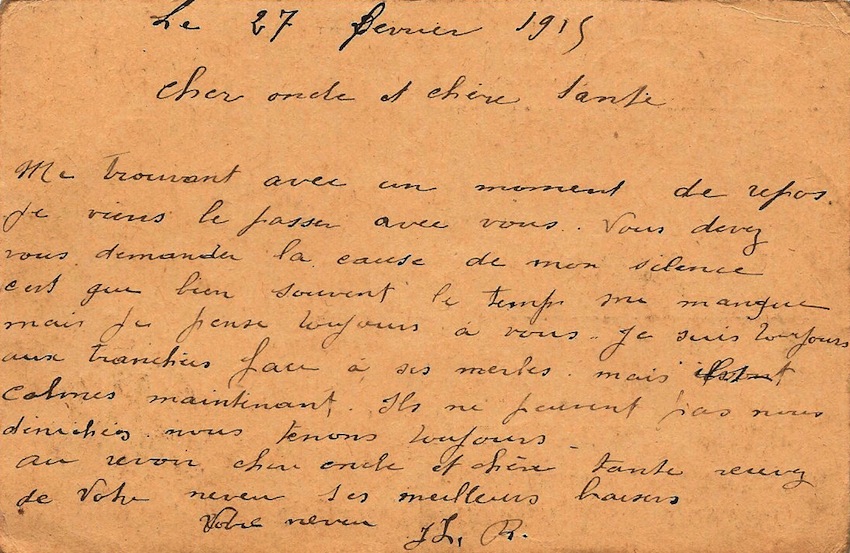 Le 27 fevrier 1915
Cher oncle et chère Tante
Me trouvant avec un moment de repos
je viens le passer avec vous. Vous devez
vous demander la cause de mon silence
c'est que bien souvent le temps me manque
mais je pense toujours à vous. Je suis toujours
aux tranchées face à ses merles. mais
calmes maintenant. Ils ne peuvent pas nous
dénicher nous tenons toujours
au revoir cher oncle et chère tante recevez
de Votre neveu ses meilleurs baisers
Votre neveu JL. R.